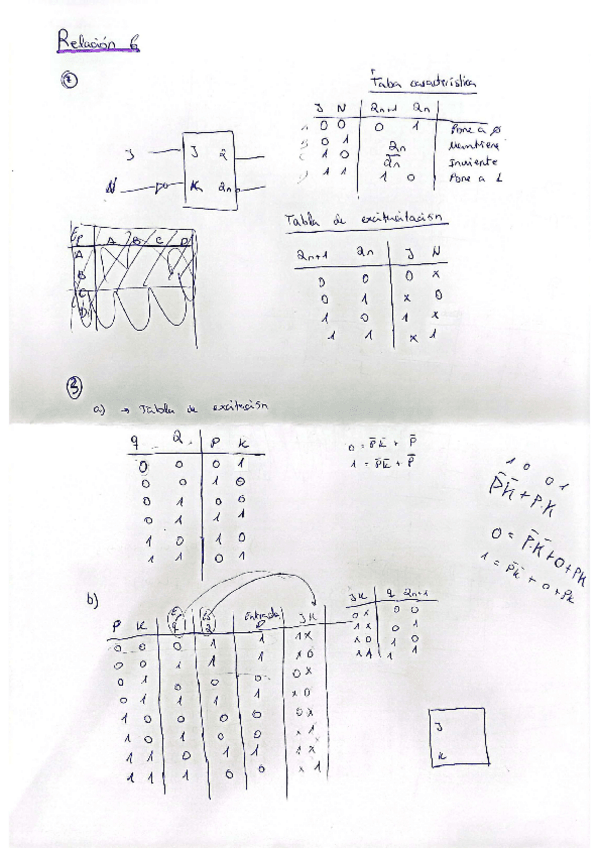 Relación 6
①
Tabla característica
J N 2n+1 2n
0 0 0 1 Pone a 0
0 1 2n Mantiene
1 0 2n Inviente
1 1 1 0 Pone a 1
J J 2
N K 2n
A B C D
A
B
C
D
Tabla de excitación
2n+1 2n J N
0 0 0 x
0 1 x 0
1 0 1 x
1 1 x 1
③
a) → Tabla de excitación
q Q P K
0 0 0 1
0 0 1 0
0 1 0 0
0 1 1 1
1 0 1 0
1 1 0 1
0 = P̄K̄ + P̄
1 = P̄K̄ + P̄
1 0 0 1
P̄K̄ + P.K
0 = P̄.K̄ + 0 + PK
1 = P̄K̄ + 0 + PK
b)
P K q 2 Entrada D J K
0 0 0 1 1 1 x
0 0 1 1 1 x 0
0 1 0 0 0 0 x
0 1 1 1 x 0
1 0 0 0 0 0 x
1 0 1 0 0 x 1
1 1 0 1 1 1 x
1 1 1 0 0 x 1
J K q 2n+1
0 x 0 0
1 x 0 1
x 0 1 0
x 1 1 1
J
K